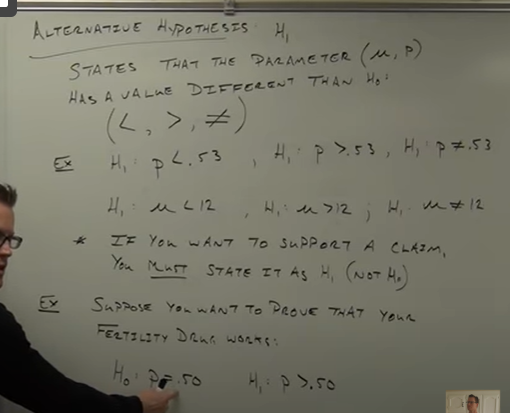 ALTERNATIVE HYPOTHESIS H₁
STATES THAT THE PARAMETER (μ, p)
HAS A VALUE DIFFERENT THAN H₀:
(<, >, ≠)
Ex H₁: p < .53 , H₁: p > .53 , H₁: p ≠ .53
H₁: μ < 12 , H₁: μ > 12 ; H₁: μ ≠ 12
* IF YOU WANT TO SUPPORT A CLAIM,
YOU MUST STATE IT AS H₁ (NOT H₀)
Ex SUPPOSE YOU WANT TO PROVE THAT YOUR
FERTILITY DRUG WORKS:
H₀: p = .50 H₁: p > .50